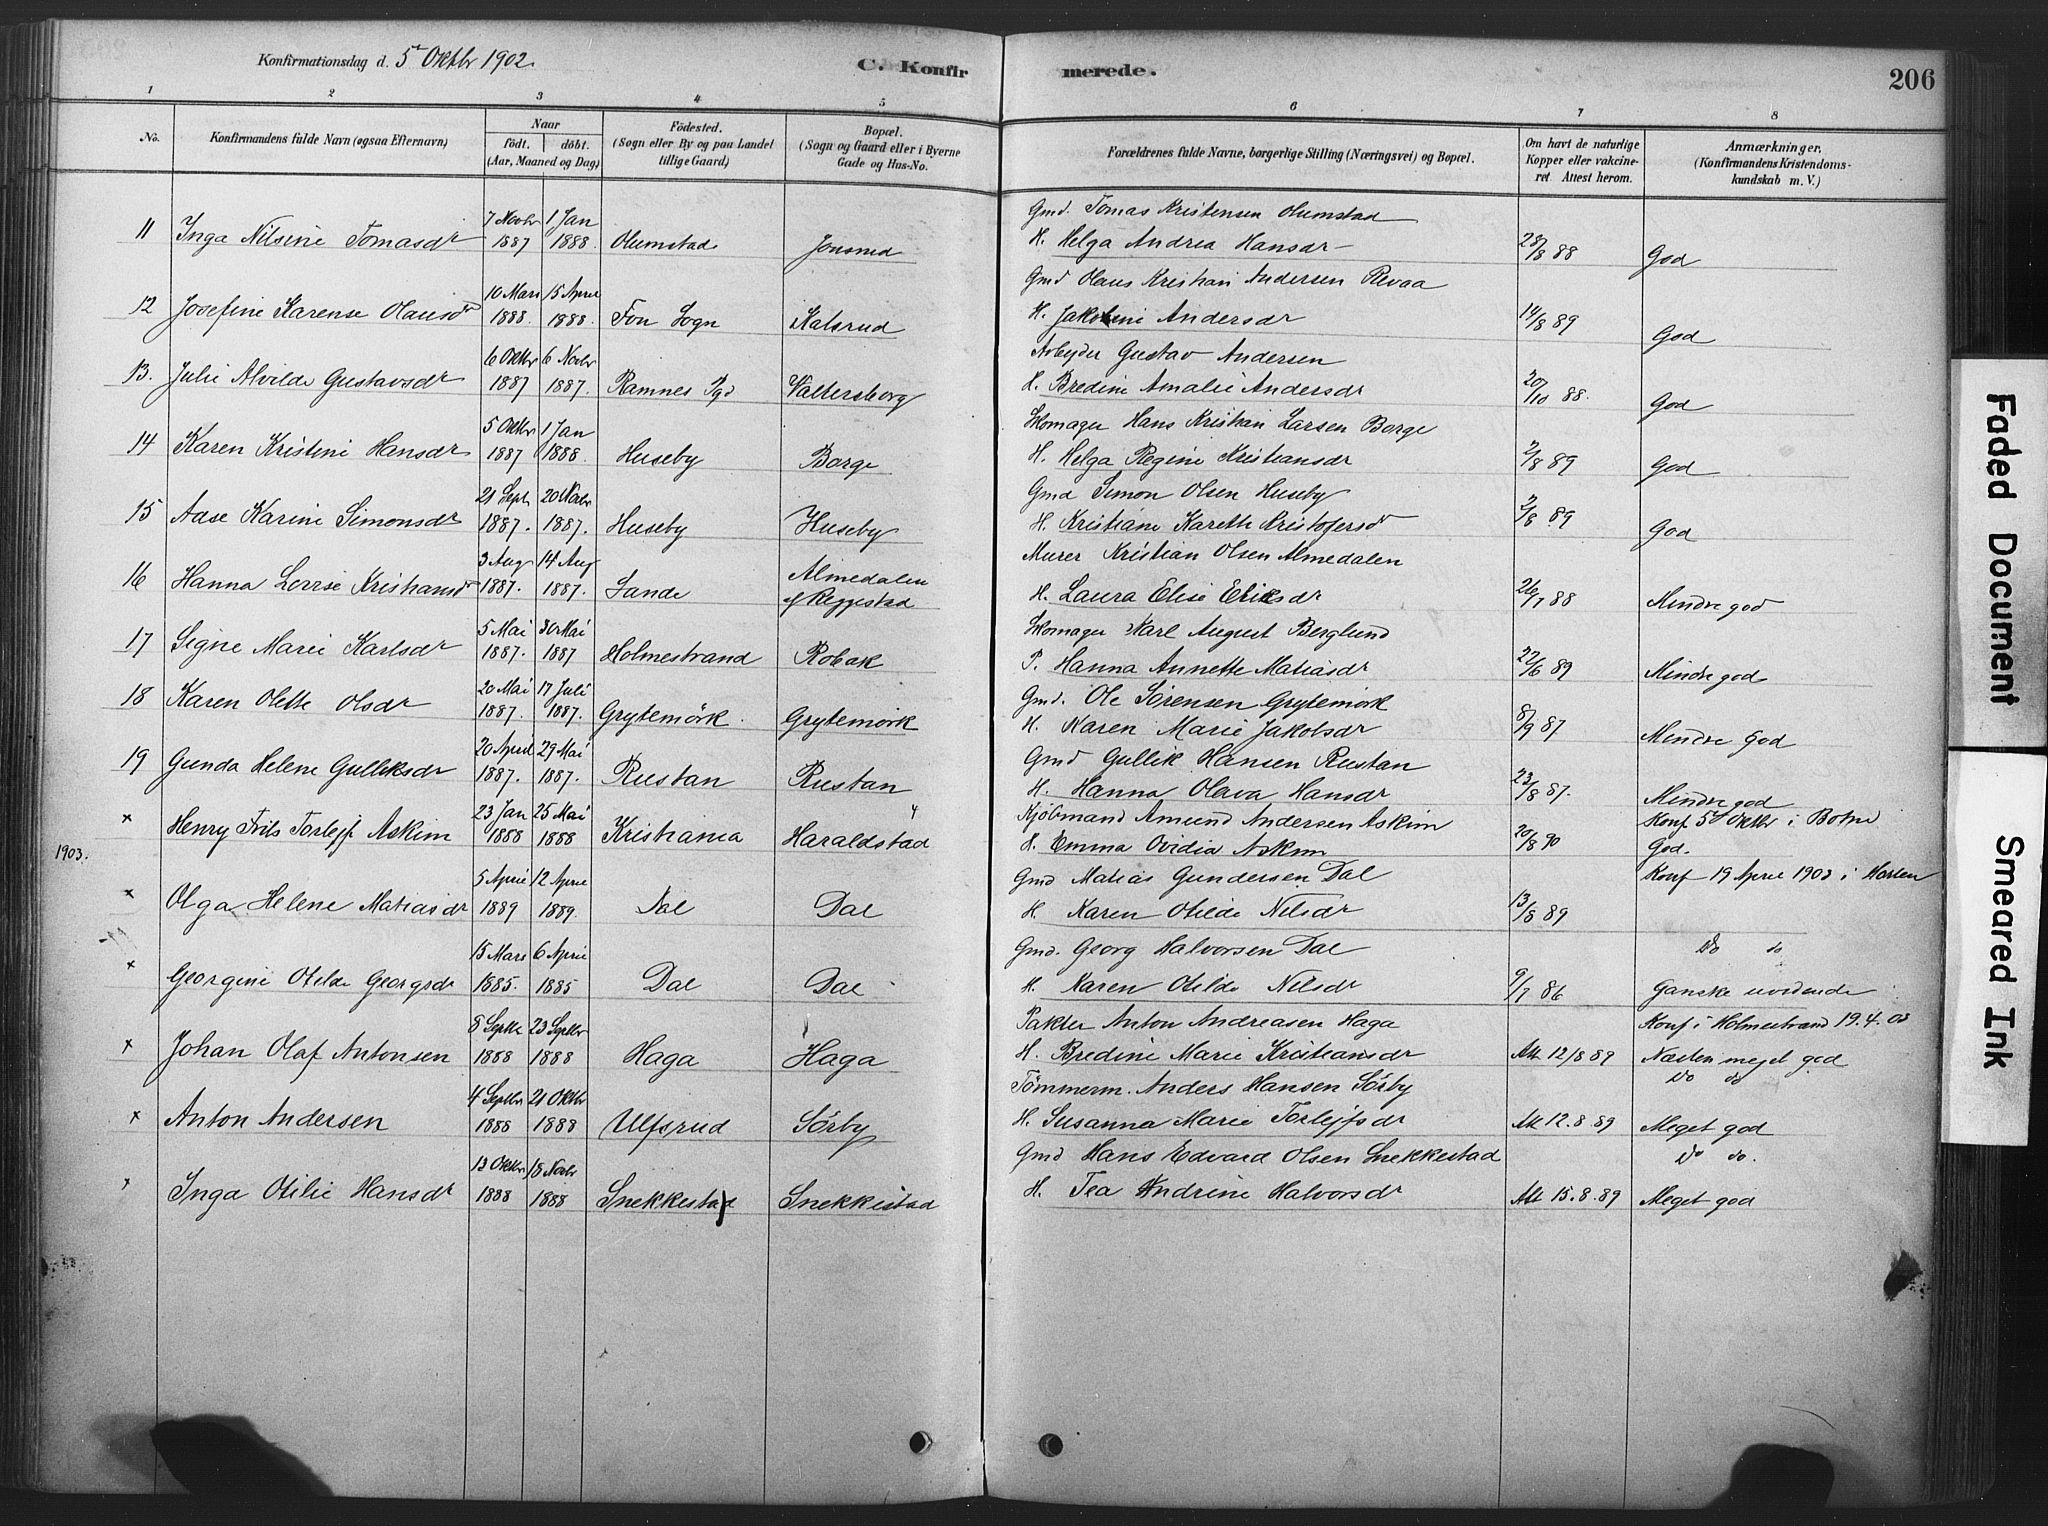 Konfirmationsdag d. 5t Oktbr 1902.
C. Konfirmerede.
206
1 2 3 4 5 6 7 8
No.
Konfirmandens fulde Navn (ogsaa Efternavn)
Naar
födt. döbt.
(Aar, Maaned og Dag)
Födested.
(Sogn eller By og paa Landet
tillige Gaard)
Bopæl.
(Sogn og Gaard eller i Byerne
Gade og Hus-No.
Forældrenes fulde Navne, borgerlige Stilling (Næringsvei) og Bopæl.
Om havt de naturlige
Kopper eller vakcine-
ret. Attest herom.
Anmærkninger,
(Konfirmandens Kristendoms-
kundskab m. V.)
7 Novbr 1 Jan Gmd. Tomas Kristensen Olumstad
11 Inga Nilsine Tomasdr 1887 1888. Olumstad Jonsrud H. Helga Andrea Hansdr 28/8 88 God
10 Mars 15 April Gmd Olaus Kristian Andersen Revaa
12 Josefine Karense Olausdr 1888. 1888. Fon Sogn Kalsrud H. Jakobine Andersdr 14/8 89 God
6 Oktbr 6 Novbr Arbeyder Gustav Andersen
13. Julie Alvilde Gustavsdr 1887 1887. Ramnes Pgd Valtersborg H. Bredine Amalie Andersdr 20/10 88. God
5 Oktbr 1 Jan Skomager Hans Kristian Larsen Borge
14 Karen Kristine Hansdr 1887 1888. Huseby Borge H. Helga Regine Kristiansdr 2/8 89 God
21 Sept 20 Novbr Gmd Simon Olsen Huseby
15 Aase Karine Simonsdr 1887. 1887. Huseby Huseby H. Kristiane Karethe Kristofersdr 2/8 89 God
3 Aug 14 Aug Almedalen Murer Kristian Olsen Almedalen
16 Hanna Lovise Kristiansdr 1887. 1887. Sande af Reggestad H. Laura Elise Eriksdr 26/7 88 Mindre god
5 Mai 30 Mai Skomager Karl August Berglund
17 Signe Marie Karlsdr 1887. 1887 Holmestrand Robak P. Hanna Annette Matiasdr 22/6 89 Mindre god
20 Mai 17 Juli Gmd. Ole Sørensen Grytemörk
18 Karen Olette Olsdr 1887. 1887. Grytemörk. Grytemörk H. Karen Marie Jakobsdr 8/9 87 Mindre God
20 April 29 Mai Gmd Gullik Hansen Rustan
19 Gunda Helene Gulliksdr 1887. 1887. Rustan Rustan H. Hanna Olava Hansdr 23/8 87. Mindre god
23 Jan 25 Mai Kjöbmand Amund Andersen Askim Konf 5t Oktbr i Botne
x Henry Frits Torlejf Askim 1888 1888 Kristiania Haraldstad H. Emma Ovidia Askim 20/8 90 God.
1903.
5 April 12 April Gmd Matias Gundersen Dal Konf 19 April 1903 i Horten
x Olga Helene Matiasdr 1889 1889. Dal Dal H. Karen Otilde Nilsdr 13/8 89
15 Mars 6 April Gmd. Georg Halvorsen Dal Do do
x Georgine Otilde Georgsdr 1885. 1885 Dal Dal H. Karen Otilde Nilsdr 9/7 86 Ganske uvidende
8 Septbr 23 Septbr Pakter Anton Andreasen Haga Konf i Holmestrand 19.4.03
x Johan Olaf Antonsen 1888 1888 Haga Haga H. Bredine Marie Kristiansdr Att 12/8 89 Næsten meget god
4 Septbr 21 Oktbr Tömmerm. Anders Hansen Sörby Do do
x Anton Andersen 1888 1888 Ulfsrud Sörby H. Susanna Marie Torlejfsdr Att 12.8.89 Meget god
13 Oktbr 18 Novbr Gmd Hans Edvard Olsen Snekkestad Do do.
x Inga Otilie Hansdr 1888 1888 Snekkestad Snekkestad H. Tea Andrine Halvorsdr Att 15.8.89 Meget god
Faded Document
Smeared Ink